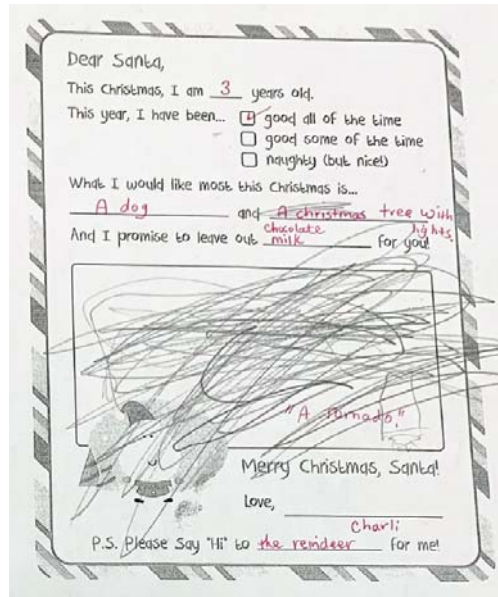 Dear Santa,
This Christmas, I am 3 years old.
This year, I have been... good all of the time
good some of the time
naughty (but nice!)
What I would like most this Christmas is...
A dog and A christmas tree with lights.
And I promise to leave out chocolate milk for you!
"A tornado."
Merry Christmas, Santa!
Love,
Charli
P.S. Please Say "Hi" to the reindeer for me!